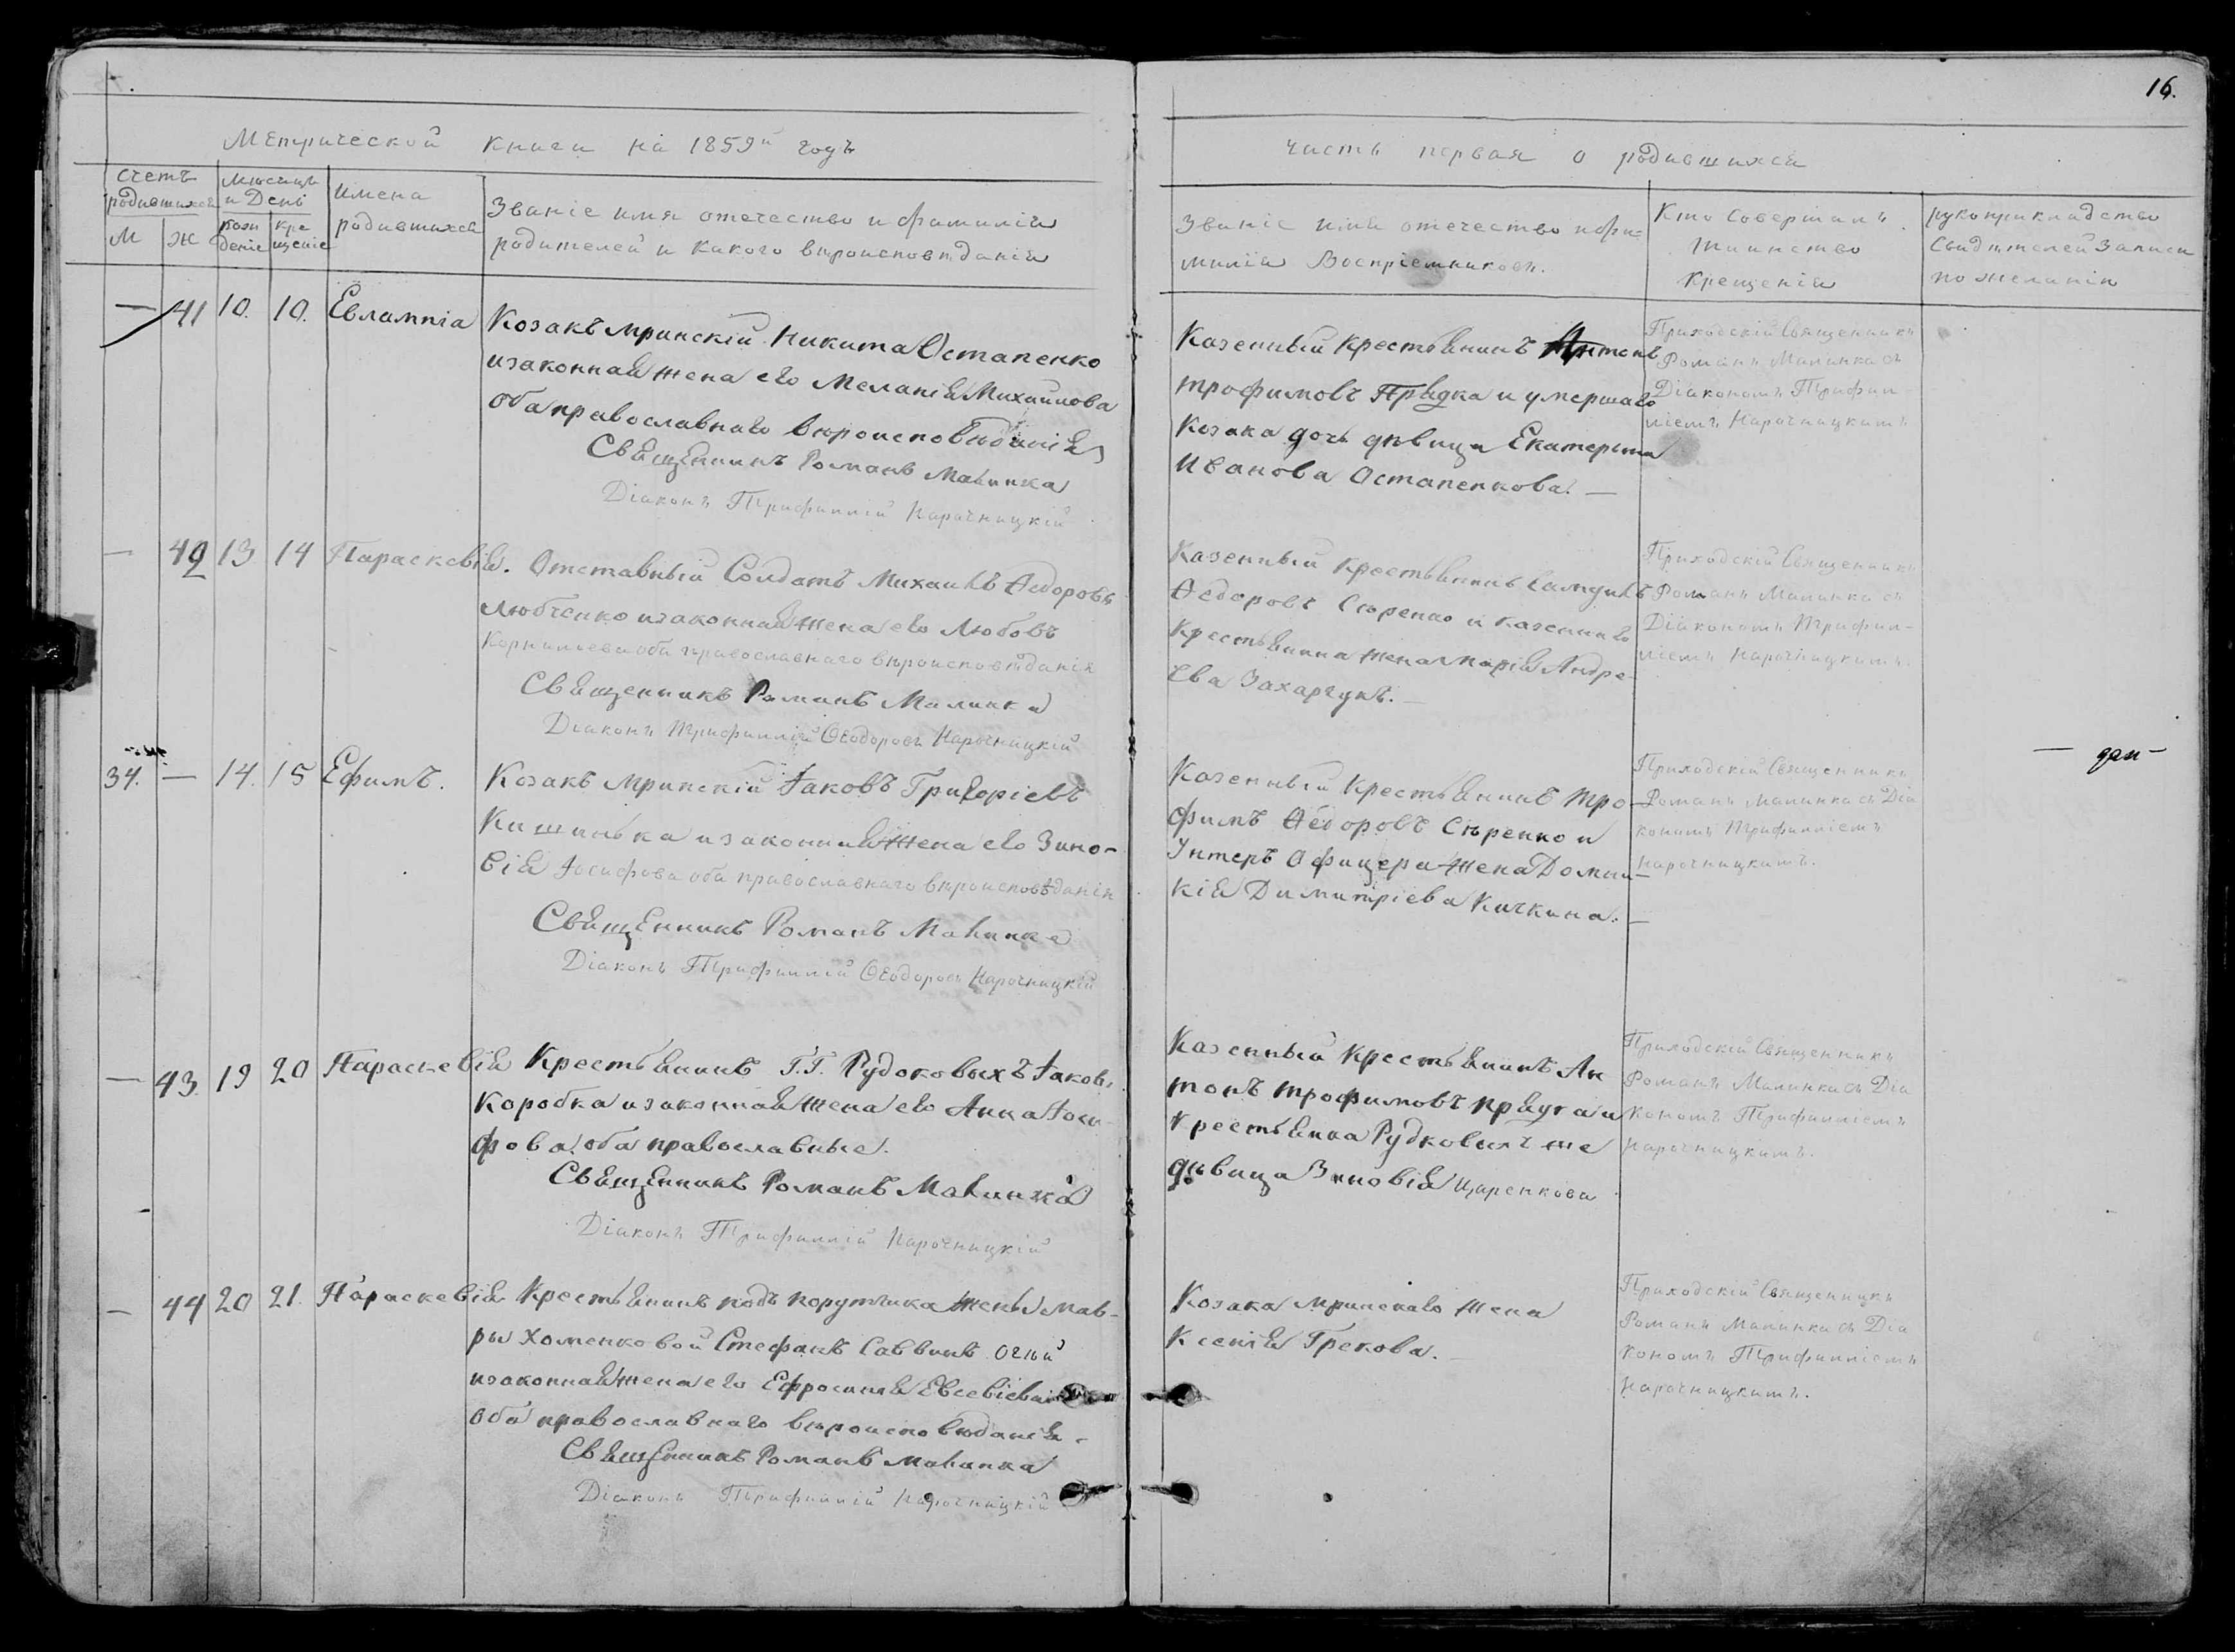 16.
Метрической книги на 1859й годъ
часть первая о родившихся
счетъ родившихся
М
Ж
мѣсяцъ и день
рождение
крещение
имена
родившихся
Званіе имя отечество и фамилія
родителей и какого вѣроисповѣданія
Званіе имя отечество и фа=
милія Воспріемниковъ.
Кто совершалъ
таинство
крещенія
рукоприкладство
свидѣтелей записи
по желанію
— 41 10. 10. Евлампіа
Козакъ мринскій Никита Остапенко
и законная жена его Меланія Михайлова
оба православнаго вѣроисповѣданія
Священникъ Романъ Малинка
Діаконъ Трифиллій Нарочницкій
Казенный крестьянинъ Антонъ
трофимовъ Прядка и умершаго
козака дочь дѣвица Екатерина
Иванова Остапенкова. —
Приходскій Священникъ
Романъ Малинка съ
Діакономъ Трифил-
ліемъ Нарочницкимъ
— 42 13 14 Параскевія.
Отставный Солдатъ Михаилъ Ѳедоровъ
Любченко и законная жена его Любовъ
Корнилиева оба православнаго вѣроисповѣданія
Священникъ Романъ Малинка
Діаконъ Трифиллій Ѳеодоровъ Нарочницкій
Казенный крестьянинъ
Ѳедоровъ Сѣренко и казеннаго
крестьянина жена Марія Андре-
ева Захарчукъ. —
Приходскій Священникъ
Романъ Малинка съ
Діакономъ Трифил-
ліемъ Нарочницкимъ.
34. — 14. 15 Ефимъ.
Козакъ мринскій Іаковъ Григоріевъ
Кишинька и законная жена его Зино-
вія Іосифова оба православнаго вѣроисповѣданія
Священникъ Романъ Малинка
Діаконъ Трифиллій Ѳеодоровъ Нарочницкій
Казенный крестьянинъ Тро-
фимъ Ѳедоровъ Сѣренко и
Унтеръ Офицера жена Домни-
кія Димитріева Кичкина. —
Приходскій Священникъ
Романъ Малинка съ Діа
кономъ Трифилліемъ
Нарочницкимъ.
— 43. 19 20 Параскевія
Крестьянинъ Г.Г. Рудоковыхъ Іаковъ
Коробка и законная жена его Анна Іоси-
фова оба православные.
Священникъ Романъ Малинка
Діаконъ Трифиллій Нарочницкій
Казенный крестьянинъ Ан
тонъ трофимовъ и
крестьянка Рудковыхъ же
дѣвица Зиновія Царенкова
Приходскій Священникъ
Романъ Малинка съ Діа
кономъ Трифилліемъ
Нарочницкимъ.
— 44 20 21. Параскевія
Крестьянинъ подъ порутчика жены Мав-
ры Хоменковой Стефанъ Саввинъ
и законная жена его Ефросинія Евсевіева
оба православнаго вѣроисповѣданія.
Священникъ Романъ Малинка
Діаконъ Трифиллій Нарочницкій
Козака мринскаго жена
Ксенія Грекова. —
Приходскій Священникъ
Романъ Малинка съ Діа
кономъ Трифилліемъ
Нарочницкимъ.